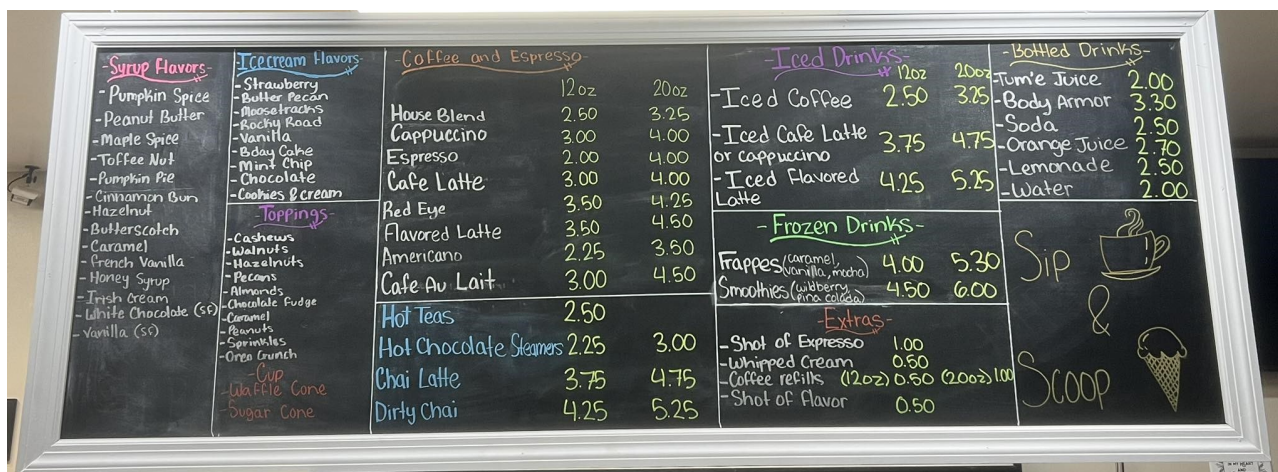 -Syrup Flavors-
-Pumpkin Spice
-Peanut Butter
-Maple Spice
-Toffee Nut
-Pumpkin Pie
-Cinnamon Bun
-Hazelnut
-Butterscotch
-Caramel
-French Vanilla
-Honey Syrup
-Irish Cream
-White Chocolate (SF)
-Vanilla (SF)
-Icecream Flavors-
-Strawberry
-Butter Pecan
-Moosetracks
-Rocky Road
-Vanilla
-Bday Cake
-Mint Chip
-Chocolate
-Cookies & cream
-Toppings-
-Cashews
-Walnuts
-Hazelnuts
-Pecans
-Almonds
-Chocolate Fudge
-Caramel
-Peanuts
-Sprinkles
-Oreo Crunch
-Cup
-Waffle Cone
-Sugar Cone
-Coffee and Espresso-
12oz 20oz
House Blend 2.50 3.25
Cappuccino 3.00 4.00
Espresso 2.00 4.00
Cafe Latte 3.00 4.00
Red Eye 3.50 4.25
Flavored Latte 3.50 4.50
Americano 2.25 3.50
Cafe Au Lait 3.00 4.50
Hot Teas 2.50
Hot Chocolate Steamers 2.25 3.00
Chai Latte 3.75 4.75
Dirty Chai 4.25 5.25
-Iced Drinks-
12oz 20oz
-Iced Coffee 2.50 3.25
-Iced Cafe Latte
or cappuccino 3.75 4.75
-Iced Flavored
Latte 4.25 5.25
-Frozen Drinks-
Frappes (caramel,
vanilla, mocha) 4.00 5.30
Smoothies (wildberry,
pina colada) 4.50 6.00
-Extras-
-Shot of Expresso 1.00
-Whipped Cream 0.50
-Coffee refills (12oz) 0.50 (20oz) 1.00
-Shot of Flavor 0.50
-Bottled Drinks-
-Tum'e Juice 2.00
-Body Armor 3.30
-Soda 2.50
-Orange Juice 2.70
-Lemonade 2.50
-Water 2.00
Sip
&
Scoop